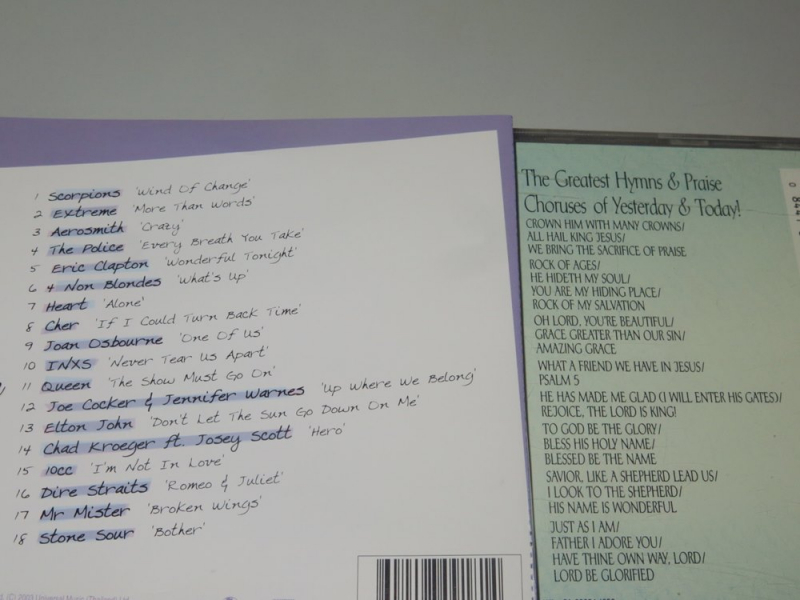 1 Scorpions 'Wind Of Change'
2 Extreme 'More Than Words'
3 Aerosmith 'Crazy'
4 The Police 'Every Breath You Take'
5 Eric Clapton 'Wonderful Tonight'
6 4 Non Blondes 'What's Up'
7 Heart 'Alone'
8 Cher 'If I Could Turn Back Time'
9 Joan Osbourne 'One Of Us'
10 INXS 'Never Tear Us Apart'
11 Queen 'The Show Must Go On'
12 Joe Cocker & Jennifer Warnes 'Up Where We Belong'
13 Elton John 'Don't Let The Sun Go Down On Me'
14 Chad Kroeger ft. Josey Scott 'Hero'
15 10cc 'I'm Not In Love'
16 Dire Straits 'Romeo & Juliet'
17 Mr Mister 'Broken Wings'
18 Stone Sour 'Bother'
The Greatest Hymns & Praise
Choruses of Yesterday & Today!
CROWN HIM WITH MANY CROWNS/
ALL HAIL KING JESUS/
WE BRING THE SACRIFICE OF PRAISE
ROCK OF AGES/
HE HIDETH MY SOUL/
YOU ARE MY HIDING PLACE/
ROCK OF MY SALVATION
OH LORD, YOU'RE BEAUTIFUL/
GRACE GREATER THAN OUR SIN/
AMAZING GRACE
WHAT A FRIEND WE HAVE IN JESUS/
PSALM 5
HE HAS MADE ME GLAD (I WILL ENTER HIS GATES)/
REJOICE, THE LORD IS KING!
TO GOD BE THE GLORY/
BLESS HIS HOLY NAME/
BLESSED BE THE NAME
SAVIOR, LIKE A SHEPHERD LEAD US/
I LOOK TO THE SHEPHERD/
HIS NAME IS WONDERFUL
JUST AS I AM/
FATHER I ADORE YOU/
HAVE THINE OWN WAY, LORD/
LORD BE GLORIFIED